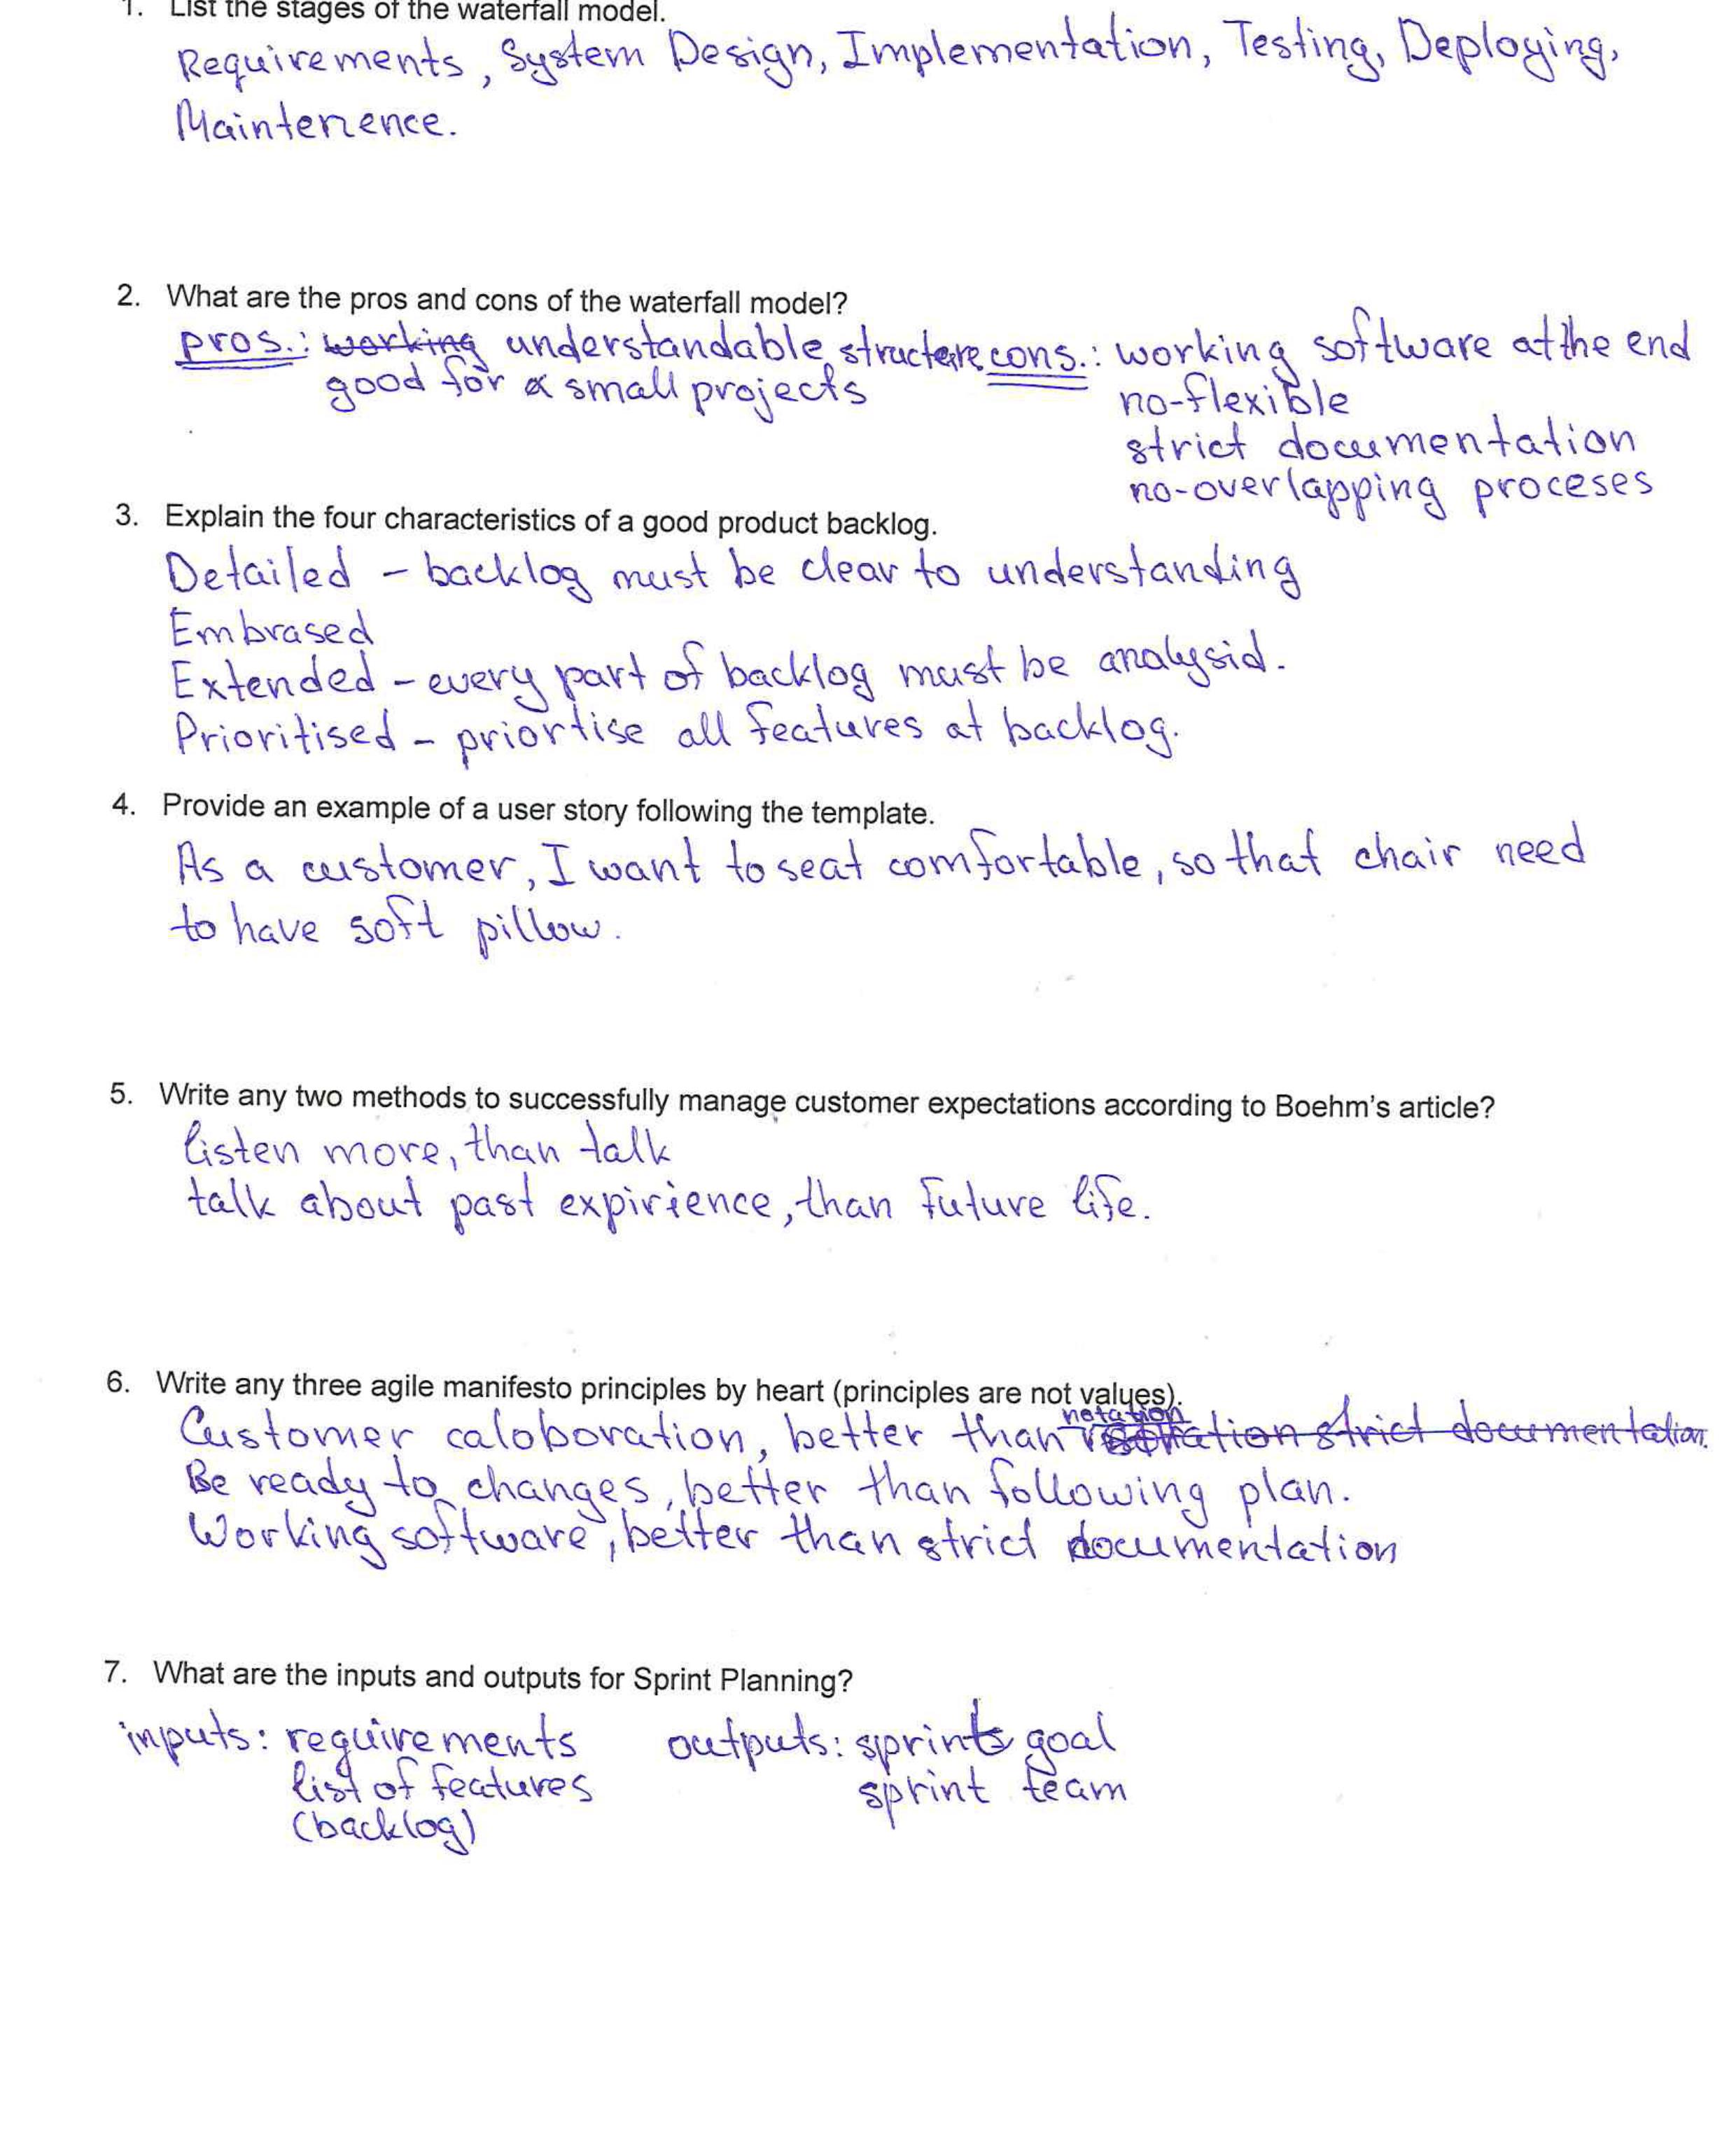 1. List the stages of the waterfall model.
Requirements, System Design, Implementation, Testing, Deploying,
Maintenence.
2. What are the pros and cons of the waterfall model?
pros.: working understandable structure cons.: working software at the end
good for a small projects
no-flexible
strict documentation
no-overlapping proceses
3. Explain the four characteristics of a good product backlog.
Detailed - backlog must be clear to understanding
Embrased
Extended - every part of backlog must be analysid.
Prioritised - priortise all features at backlog.
4. Provide an example of a user story following the template.
As a customer, I want to seat comfortable, so that chair need
to have soft pillow.
5. Write any two methods to successfully manage customer expectations according to Boehm's article?
listen more, than talk
talk about past expirience, than future life.
6. Write any three agile manifesto principles by heart (principles are not values).
notation
Customer caloboration, better than strict documentation.
Be ready to changes, better than following plan.
Working software, better than strict documentation
7. What are the inputs and outputs for Sprint Planning?
inputs: requirements outputs: sprint goal
list of features sprint team
(backlog)